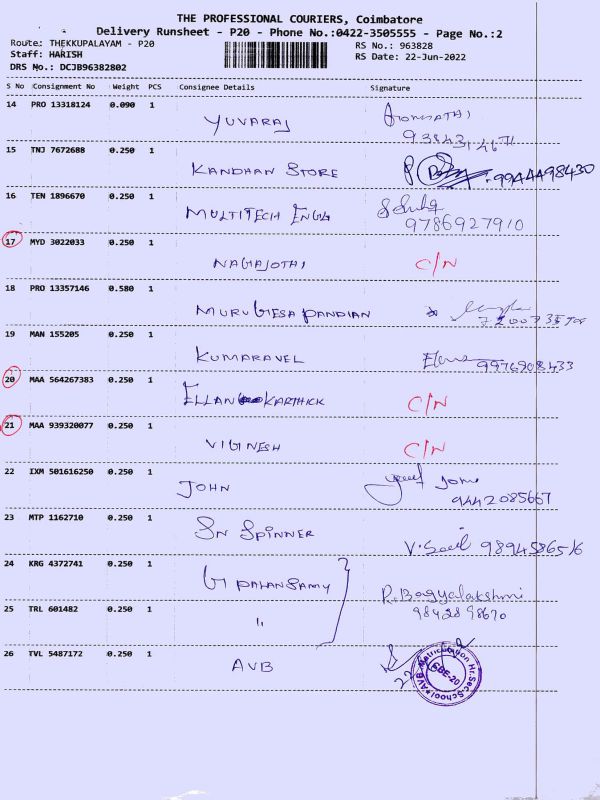 THE PROFESSIONAL COURIERS, Coimbatore
Delivery Runsheet - P20 - Phone No.:0422-3505555 - Page No.:2
Route: THEKKUPALAYAM - P20
RS No.: 963828
Staff: HARISH
RS Date: 22-Jun-2022
DRS No.: DCJB96382802
S No Consignment No Weight PCS Consignee Details Signature
14 PRO 13318124 0.090 1
YUVARAJ
15 TNJ 7672688 0.250 1
KANDHAN STORE 9944498430
16 TEN 1896670 0.250 1
MULTITECH ENGG
9786927910
17 MYD 3022033 0.250 1
NAGAJOTHI C/N
18 PRO 13357146 0.580 1
MURUGESA PANDIAN
19 MAN 155205 0.250 1
KUMARAVEL 9976908433
20 MAA 564267383 0.250 1
ELLAN KARTHICK C/N
21 MAA 939320077 0.250 1
VIGINESH C/N
22 IXM 501616250 0.250 1
JOHN
9442085667
23 MTP 1162710 0.250 1
SN SPINNER
V. 9894586516
24 KRG 4372741 0.250 1
G PALANSAMY R. Bagyalakshmi
25 TRL 601482 0.250 1
9842898670
"
26 TVL 5487172 0.250 1
AVB
AVB Matriculation Hr.Sec.School
CBE-20
22